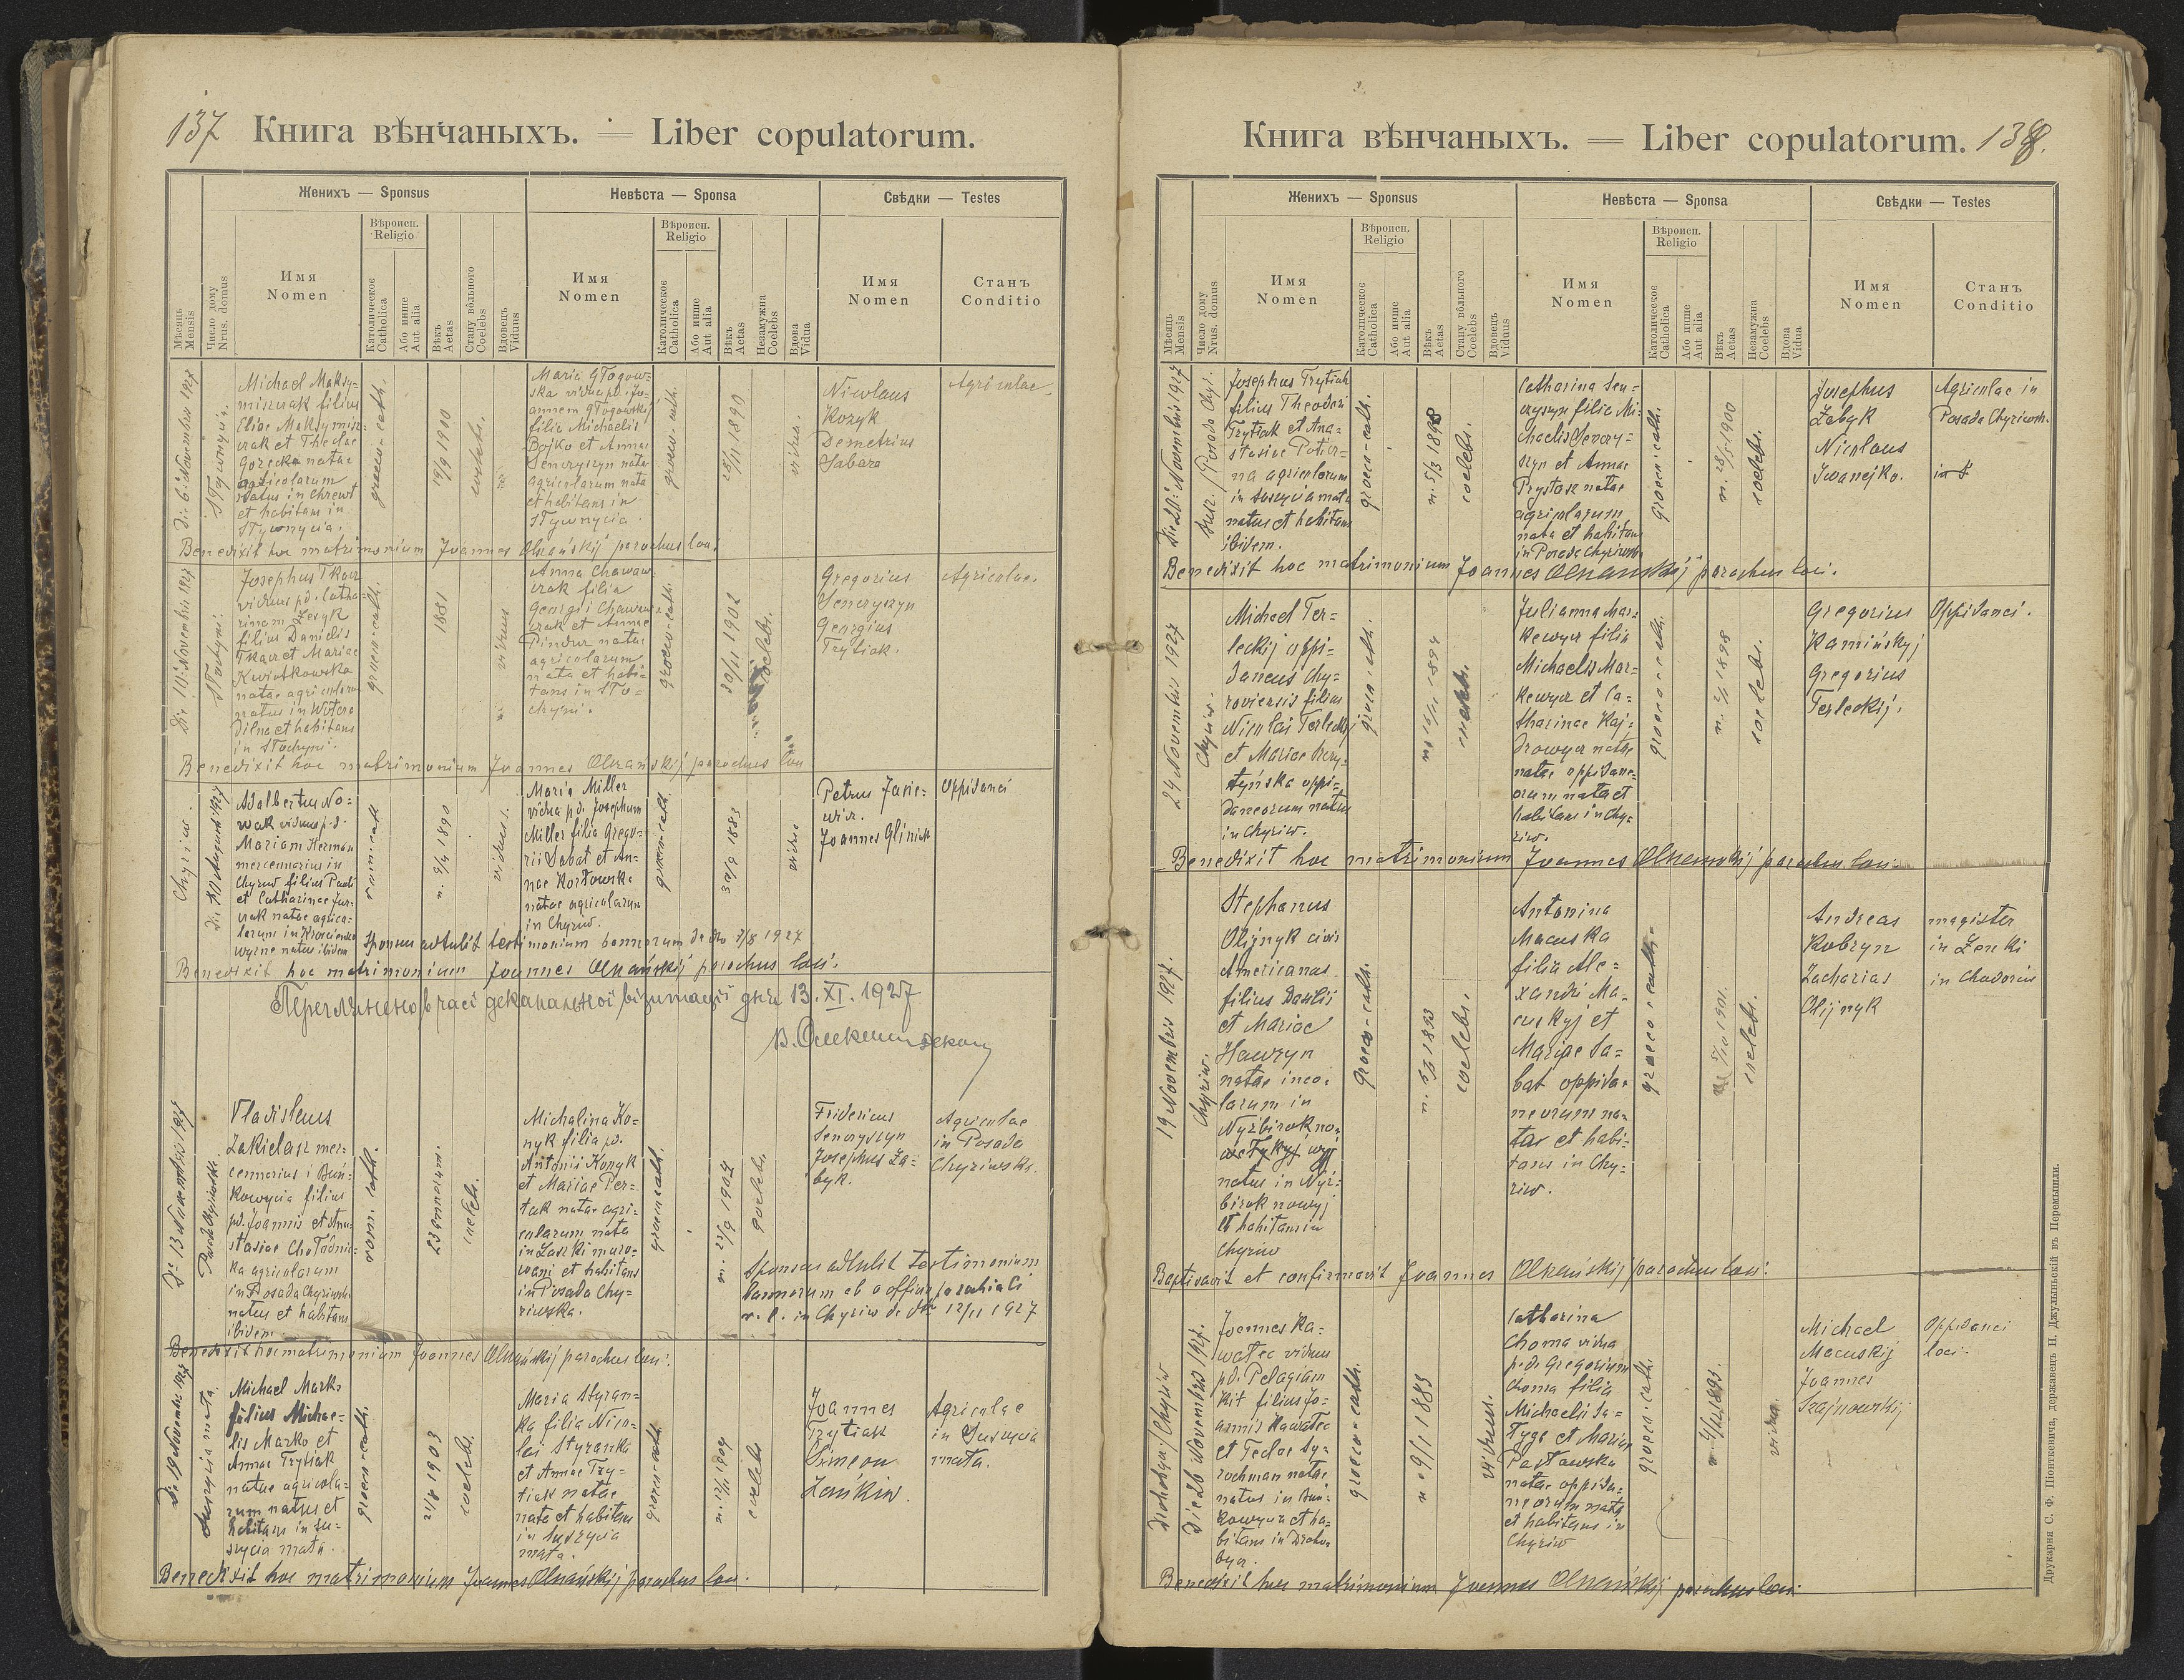 137 Книга вѣнчаныхъ. — Liber copulatorum.
Женихъ — Sponsus
Невѣста — Sponsa
Свѣдки — Testes
Мѣсяць
Mensis
Число дому
Nrus. domus
Имя
Nomen
Вѣроисп.
Religio
Католическое
Catholica
Або инше
Aut alia
Вѣкъ
Aetas
Стану вôльного
Coelebs
Вдовецъ
Viduus
Имя
Nomen
Вѣроисп.
Religio
Католическое
Catholica
Або инше
Aut alia
Вѣкъ
Aetas
Незамужна
Coelebs
Вдова
Vidua
Имя
Nomen
Станъ
Conditio
Die 6: Novembris 1927
Michael Maksy-
miszrak filius
Eliae Maksymisz-
rak et Theclae
Gorecka natae
agricolarum
natus in Chrewt
et habitans in
graeco-cath.
19/9 1900
coelebs.
Maria Głogow-
ska vidua pd. Jo-
annem Głogowskij
filia Michaelis
Bojko et Annae
Senczyszyn natae
agricolarum nata
et habitans in
graeco-cath.
1890
vidua.
Nicolaus
Kozyk
Demetrius
Sabara
Agricolae
Benedixit hoc matrimonium Joannes Olszańskij parochus loci.
Die 11: Novembris 1927
Josephus Tkacz
viduus pd. Catha-
rinam Lesyk
filius Danielis
Tkacz et Mariae
Kwiatkowska
natae agricolarum
natus in
et habitans
in
graeco-cath.
1881
viduus
Anna Chawaw-
czak filia
Georgii
czak et Annae
Pindur natae
agricolarum
nata et habi-
tans in
graeco-cath.
30/11 1902
coelebs.
Gregorius
Senczyszyn
Georgius
Trytiak.
Agricolae.
Benedixit hoc matrimonium Joannes Olszańskij parochus loci
Chyriw.
Die 30 Augusti 1927
Adalbertus No-
wak viduus p.d.
Mariam Herman
mercennarius in
Chyriw filius Pauli
et Catharinae
natae agrico-
larum in
natus ibidem
rom: cath.
1890
viduus.
Maria Miller
vidua pd. Josephum
Miller filia Grego-
rii Sabat et An-
nae Kozłowska
natae agricolarum
in Chyriw.
graeco-cath.
30/9 1883
vidua
Petrus Jasie-
wicz.
Joannes Glinick
Oppidanei
Sponsus adtulit testimonium bannorum de dto 7/8 1927
Benedixit hoc matrimonium Joannes Olszańskij parochus loci.
Переглянено в часі деканальної візитації дня 13. XI. 1927
Die 13 Novembris 1927
Vladislaus
Zakielarz mer-
cennarius i Buń-
kowycia filius
pd. Joannis et Ana-
stasiae Chołodnic-
ka agricolarum
in Posada Chyriwska
natus et habitans
ibidem.
rom: cath.
23 annorum.
coelebs.
Michalina Ko-
nyk filia pd.
Antonii Konyk
et Mariae Per-
tak natae agri-
colarum nata
in Laszki muro-
wani et habitans
in Posada Chy-
riwska.
graeco cath.
1904
coelebs.
Fridericus
Senczyszyn
Josephus Za-
byk.
Agricolae
in Posada
Chyriwska.
Sponsus adtulit testimonium
bannorum ab officio parochiali
r. l. in Chyriw de dto 12/11 1927
Benedixit hoc matrimonium Joannes Olszańskij parochus loci.
Die 19 Novembris 1927
Suszycia mała.
Michael Marko
filius Michae-
lis Marko et
Annae Trytiak
natae agricola-
rum natus et
habitans in Su-
szycia mała.
graeco-cath.
21/8 1903
coelebs.
Maria Styran-
ka filia Nico-
lai Styranka
et Annae Try-
tiak natae
nata et habitans
in Suszycia
mała.
graeco-cath.
1904
coelebs
Joannes
Trytiak
Simeon
Zańkiw.
Agricolae
in Suszycia
mała.
Benedixit hoc matrimonium Joannes Olszańskij parochus loci.
Книга вѣнчаныхъ. — Liber copulatorum. 138.
Женихъ — Sponsus
Невѣста — Sponsa
Свѣдки — Testes
Мѣсяць
Mensis
Число дому
Nrus. domus
Имя
Nomen
Вѣроисп.
Religio
Католическое
Catholica
Або инше
Aut alia
Вѣкъ
Aetas
Стану вôльного
Coelebs
Вдовецъ
Viduus
Имя
Nomen
Вѣроисп.
Religio
Католическое
Catholica
Або инше
Aut alia
Вѣкъ
Aetas
Незамужна
Coelebs
Вдова
Vidua
Имя
Nomen
Станъ
Conditio
Die 20: Novembris 1927
Susz. / Posada Chyr.
Josephus Trytiak
filius Theodori
Trytiak et Ana-
stasiae
na agricolarum
in Suszycia mała
natus et habitans
ibidem.
graeco-cath.
n. 5/3 1898
coelebs.
Catharina Sen-
czyszyn filia Mi-
chaelis Senczy-
szyn et Annae
Prystasz natae
agricolarum
nata et habitans
in Posada Chyriwska
graeco-cath.
n. 28/5 1900
coelebs.
Josephus
Zabyk
Nicolaus
Iwanejko.
Agricolae in
Posada Chyriwsk.
Benedixit hoc matrimonium Joannes Olszańskij parochus loci.
24 Novembris 1927
Chyriw.
Michael Ter-
leckij oppi-
daneus Chy-
roviensis filius
Nicolai Terleckij
et Mariae
oppi-
daneorum natus
in Chyriw.
graeco cath.
1894
coelebs.
Julianna Mar-
kewycz filia
Michaelis Mar-
kewycz et Ca-
tharinae Kaj-
drowycz natae
natae oppidane-
orum nata et
habitans in Chy-
riw.
graeco cath.
1898
coelebs.
Gregorius
Kamińskyj
Gregorius
Terleckij.
Oppidanei.
Benedixit hoc matrimonium Joannes Olszańskij parochus loci.
19 Novembris 1927.
Chyriw.
Stephanus
Olijnyk civis
Americanus
filius Basilii
et Mariae
Hawryn
natae inco-
larum in
Nyżbirok no-
natus in Nyż-
birok nowyj
et habitans in
Chyriw
graeco-cath.
1893
coelebs.
Antonina
Macuska
filia Ale-
xandri Ma-
cuskyj et
Mariae Sa-
bat oppida-
neorum na-
tae et habi-
tans in Chy-
riw.
graeco-cath.
5/10 1901.
coelebs.
Andreas
Kobryn
Zacharias
Olijnyk
magister
in Zenki
in Chodoriw
Baptisavit et confirmavit Joannes Olszańskij parochus loci.
Drohobycz / Chyriw
Die 26 Novembris 1927.
Joannes Ka-
watec viduus
pd. Pelagiam
Kit filius Jo-
annis Kawatec
et Teclae Sy-
rochman natae
natus in Buń-
kowycia et ha-
bitans in Droho-
bycz.
graeco-cath.
n 9/1 1883
viduus.
Catharina
Choma vidua
p.d. Gregorium
Choma filia
Michaelis Sa-
łyga et Mariae
Pastawska
natae oppida-
neorum nata
et habitans in
Chyriw
graeco-cath.
1893.
vidua.
Michael
Macuskij
Joannes
Szajnowskij
Oppidanei
loci.
Benedixit hoc matrimonium Joannes Olszańskij parochus loci.
Друкарня С. Ф. Піонткевича, державецъ Н. Джулыньскій въ Перемышли.